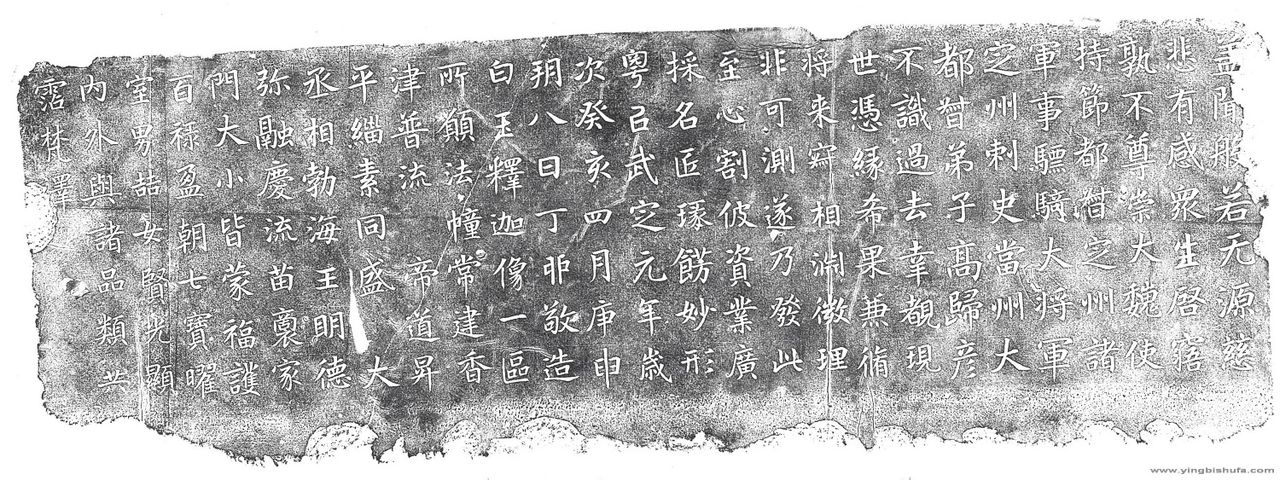 盖聞般若无源慈
悲有感眾生啓寤
孰不尊崇大魏使
持節都督定州諸
軍事驃騎大将軍
定州刺史當州大
都督弟子髙歸彦
不識過去幸覩現
世憑縁希果兼脩
将来𡨋相渊微理
非可測遂乃發此
至心割彼資業廣
採名匠琢餝妙形
粤以武定元年歳
次癸亥四月庚申
朔八日丁卯敬造
白玉釋迦像一區
所願法幢常建香
津普流 帝道昇
平緇素同盛 大
丞相勃海王明德
弥融慶流苗裔家
門大小皆蒙福護
百禄盈朝七寶曜
室男喆女賢光顯
内外與諸品類共
霑梵澤
www.yingbishufa.com